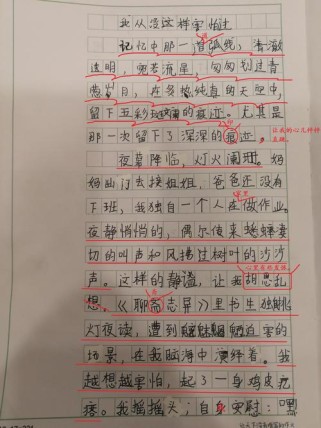 我从没这样害怕过
记忆中那一道弧线，清澈
透明，宛若流星，匆匆划过青
葱岁月，在多格纯真的天空中，
留下五彩斑斓的痕迹。尤其是
那一次留下了深深的痕迹，
夜幕降临，灯火阑珊。妈
妈出门去接姐姐，爸爸还没有
下班，我独自一个人在做作业。
夜静悄悄的，偶尔传来蟋蟀凄
切的叫声和风拂过树叶的沙沙
声。这样的静谧，让我胡思乱
想，《聊斋志异》里书生独挑
灯夜读，遭到魑魅魍魉迫害的
场景，在我脑海中演绎着。我
越想越害怕，起了一身鸡皮疙
瘩。我摇摇头；自我安慰：嘿